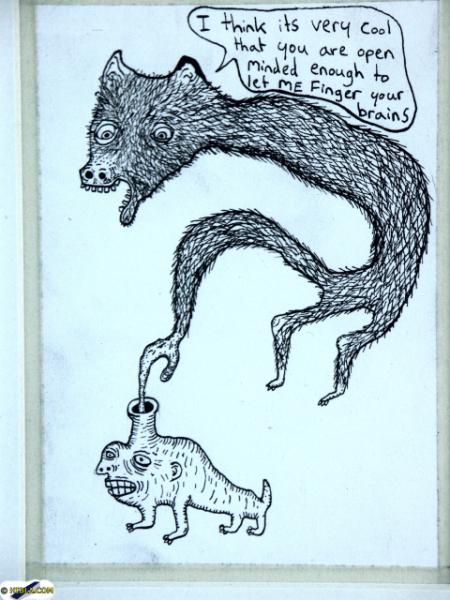 I think its very cool
that you are open
minded enough to
let ME Finger your
brains
© HIFILA.COM